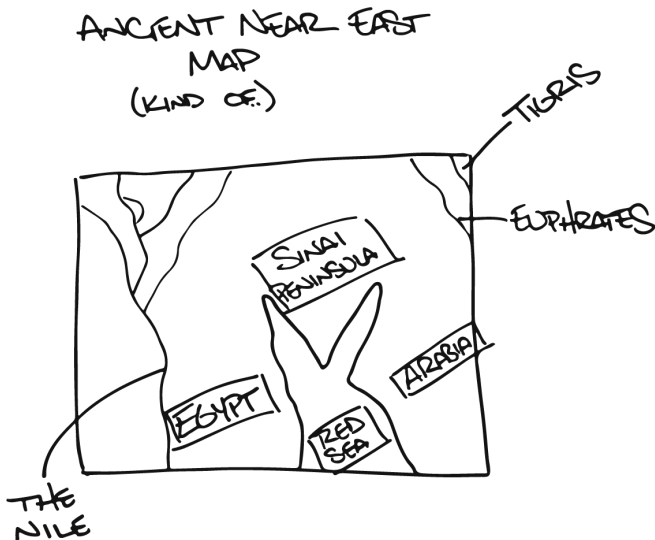 ANCIENT NEAR EAST
MAP
(KIND OF..)
TIGRIS
EUPHRATES
SINAI
PENINSULA
ARABIA
EGYPT
RED
SEA
THE
NILE